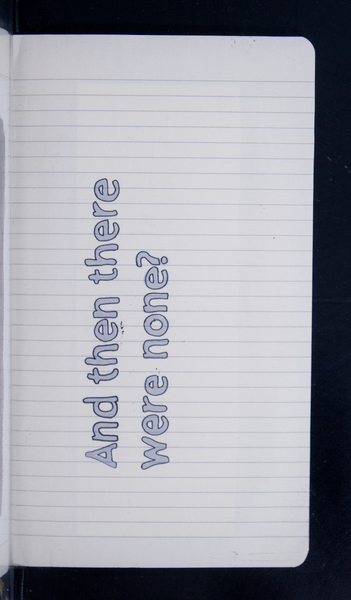 And then there
were none?